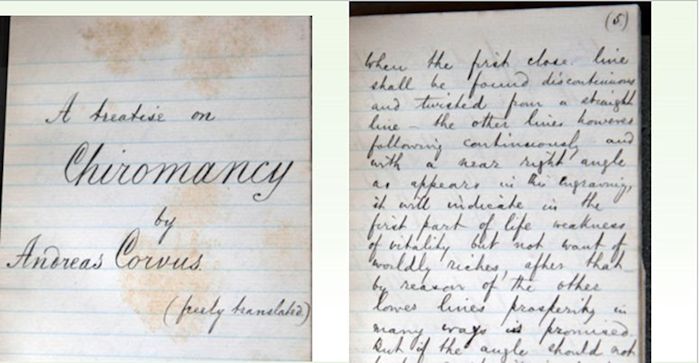 A treatise on
Chiromancy
by
Andreas Corvus.
(freely translated)
(5)
When the first close line
shall be found discontinuous
and twisted from a straight
line – the other lines however
following continuously and
with a near right angle
as appears in this engraving,
it will indicate in the
first part of life weakness
of vitality but not want of
worldly riches, after that
by reason of the other
lower lines prosperity in
many ways is promised.
But if the angle should not